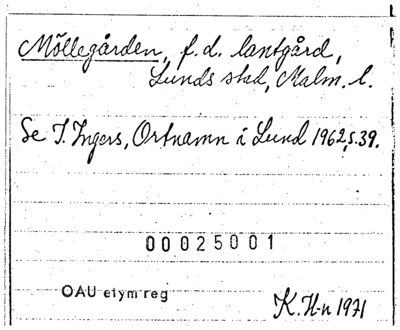 Möllegården, f.d. lantgård,
Lunds stad, Malm. l.
Se I. Ingers, Ortnamn i Lund 1962, s. 39.
00025001
OAU etym reg
K. H-n 1971